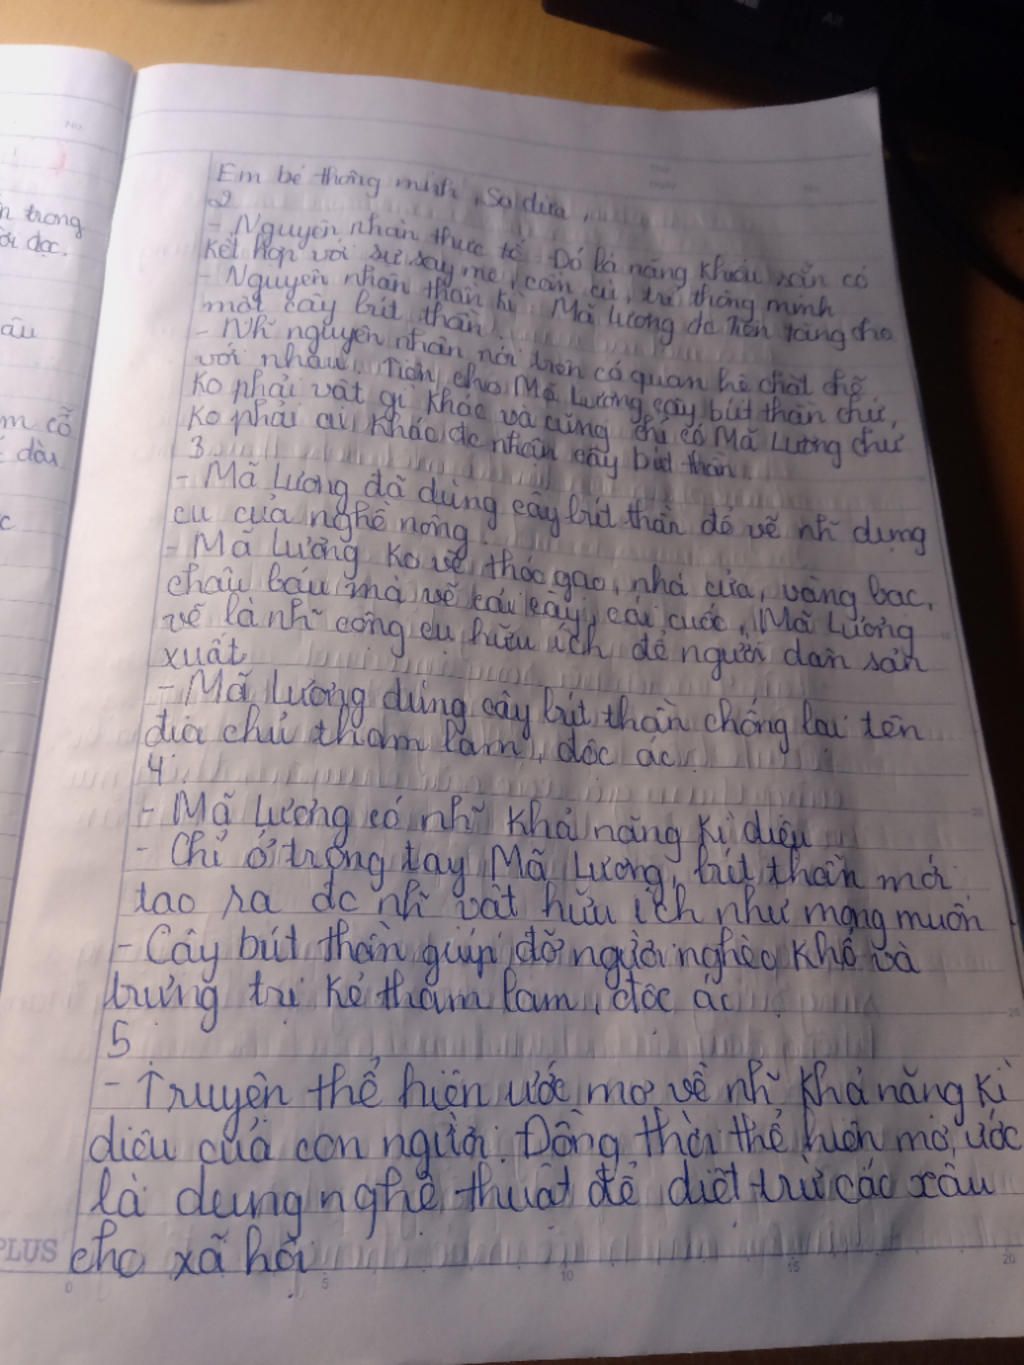 n trong
ời đọc.
âu
m cỗ
dài
c
Em bé thông minh, Sọ dừa,
2
- Nguyên nhân thực tế: Đó là năng khiếu sẵn có
kết hợp với sự say mê, cần cù, trí thông minh
- Nguyên nhân thần kì: Mã lương đc tiên tặng cho
một cây bút thần.
- Nh~ nguyên nhân nói trên có quan hệ chặt chẽ
với nhau. Tiên cho Mã Lương cây bút thần chứ
ko phải vật gì khác và cũng chỉ có Mã Lương chứ
ko phải ai khác đc nhận cây bút thần
3
- Mã Lương đã dùng cây bút thần để vẽ nh~ dụng
cụ của nghề nông.
- Mã Lương ko vẽ thóc gạo, nhà cửa, vàng bạc,
châu báu mà vẽ cái cày, cái cuốc, Mã Lương
vẽ là nh~ công cụ hữu ích để người dân sản
xuất
- Mã Lương dùng cây bút thần chống lại tên
địa chủ tham lam, độc ác
4
- Mã Lương có nh~ khả năng kì diệu
- Chỉ ở trong tay Mã Lương, bút thần mới
tạo ra đc nh~ vật hữu ích như mong muốn
- Cây bút thần giúp đỡ người nghèo khổ và
trừng trị kẻ tham lam, độc ác
5
- Truyện thể hiện ước mơ về nh~ khả năng kì
diệu của con người. Đồng thời thể hiện mơ ước
là dụng nghệ thuật để diệt trừ các xấu
cho xã hội
PLUS
0 5 10 15 20